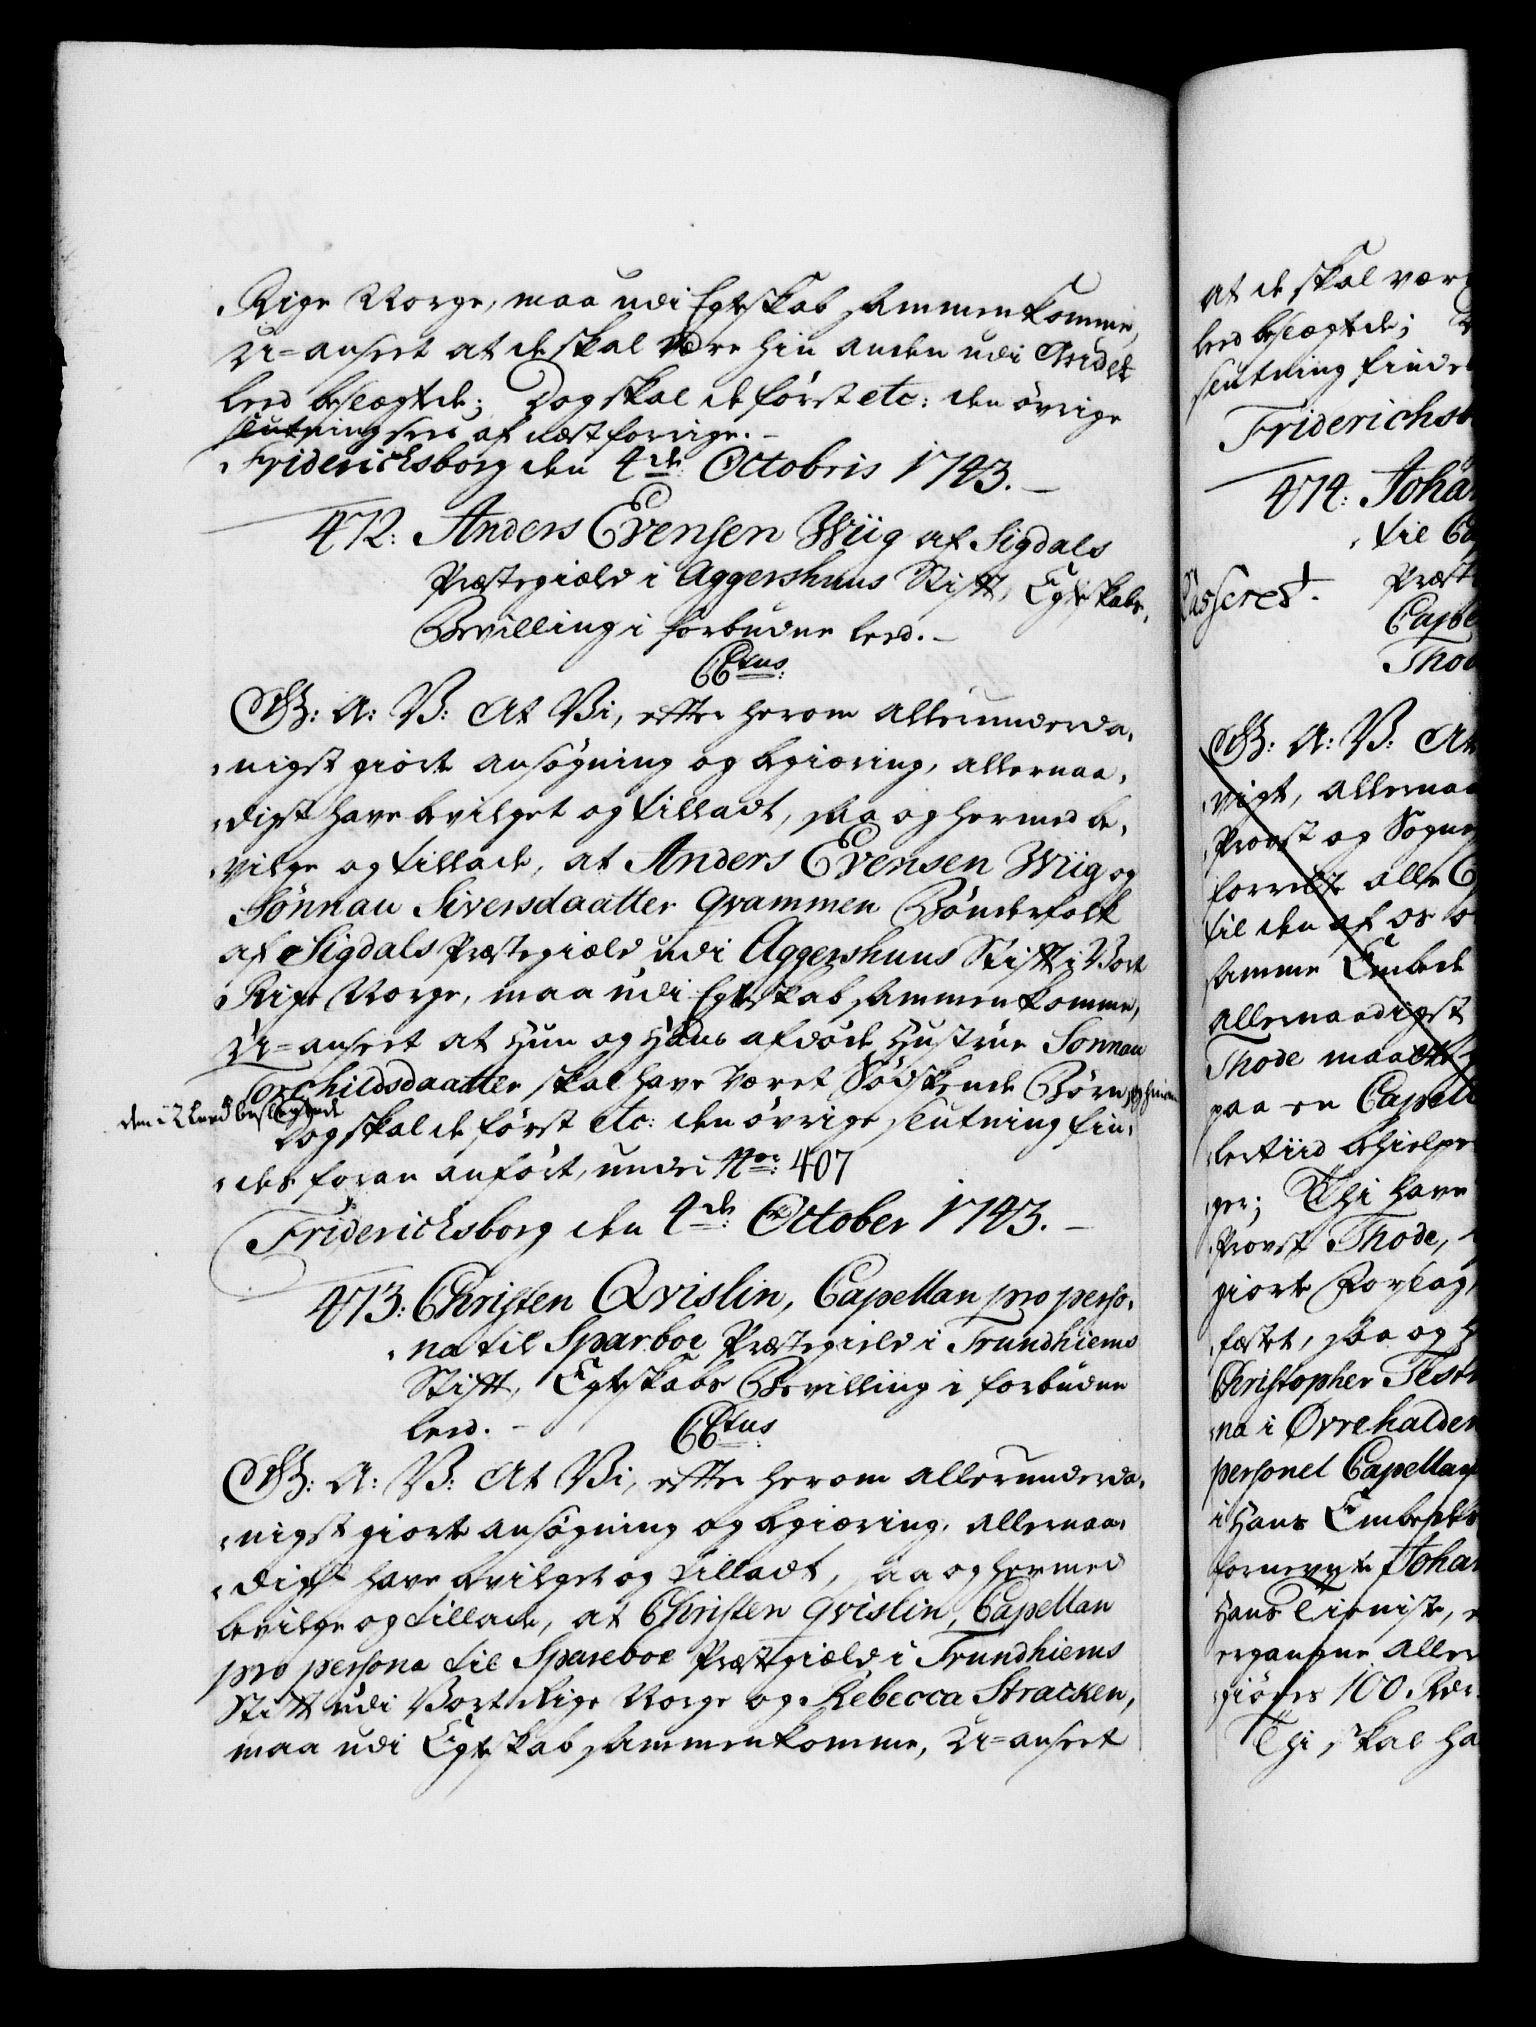 Rige Norge, maa udi Egteskab sammenkomme,
U-anseet at de skal være hin anden udi Tridie
Leed beslægtede; Dog skal de først etc: den øvrige
slutning seer af næst forrige.
Friderichsborg den 4de Octobris 1743.
472: Anders Evensen Wiig af Sigdals
Præstegield i Aggershuus Stift, Egteskabs
Bevilling i forbudne Leed.
CCtus
G: A: V: At Vi, efter herom allerunderda-
nigst giorte ansøgning og begiæring, allernaa-
digst have bevilget og tilladt, saa og hermed be-
vilge og tillade, at Anders Evensen Wiig og
Sönnau Siversdaatter Qvammen Bønderfolk
af Sigdals Præstegield udi Aggershuus Stift i Vort
Rige Norge, maa udi Egteskab sammenkomme,
U-anseet at Hun og Hans afdøde Hustrue Sonnau
Torchildsdaatter skal have været Sødskende Børn og hinan-
den i 2 Leed beslegtede
Dog skal de først etc: den øvrige slutning fin-
des foran anført, under No: 407
Friderichsborg den 4de October 1743.
473: Christen Qvislin, Capellan pro perso-
na til Sparboe Præstegield i Trundhiems
Stift, Egteskabs Bevilling i forbudne
Leed.
CCtus
G: A: V: At Vi, efter herom allerunderda-
nigst giorte ansøgning og begiæring, allernaa-
digst have bevilget og tilladt, saa og hermed
bevilge og tillade, at Christen Qvislin, Capellan
pro persona til Spareboe Præstegield i Trundhiems
Stift udi Vort Rige Norge og Rebecca Stracken,
maa udi Egteskab sammenkomme, U-anseet
at de skal være
Leed beslægtede;
slutning findes
Friderichsb
474: Johan
til
Præst
Casseret.
Capel
Thod
G: A: V: At
vigt, allernaa
Provst og Sogne
forrette alle
til den af os
samme Embede
allernaadigst
Thode maatte
paa en Capell
Lertiid behielpe
ger; Thi have
Provst Thode,
giorte Forslag,
fæstet, saa og
Christopher
na i Øvrehalden
personel Capellan
i Hans Embedes
fornevnte Johan
Hans Tieniste,
ergangne aller
giøres 100 Rdr.
Thi skal ha